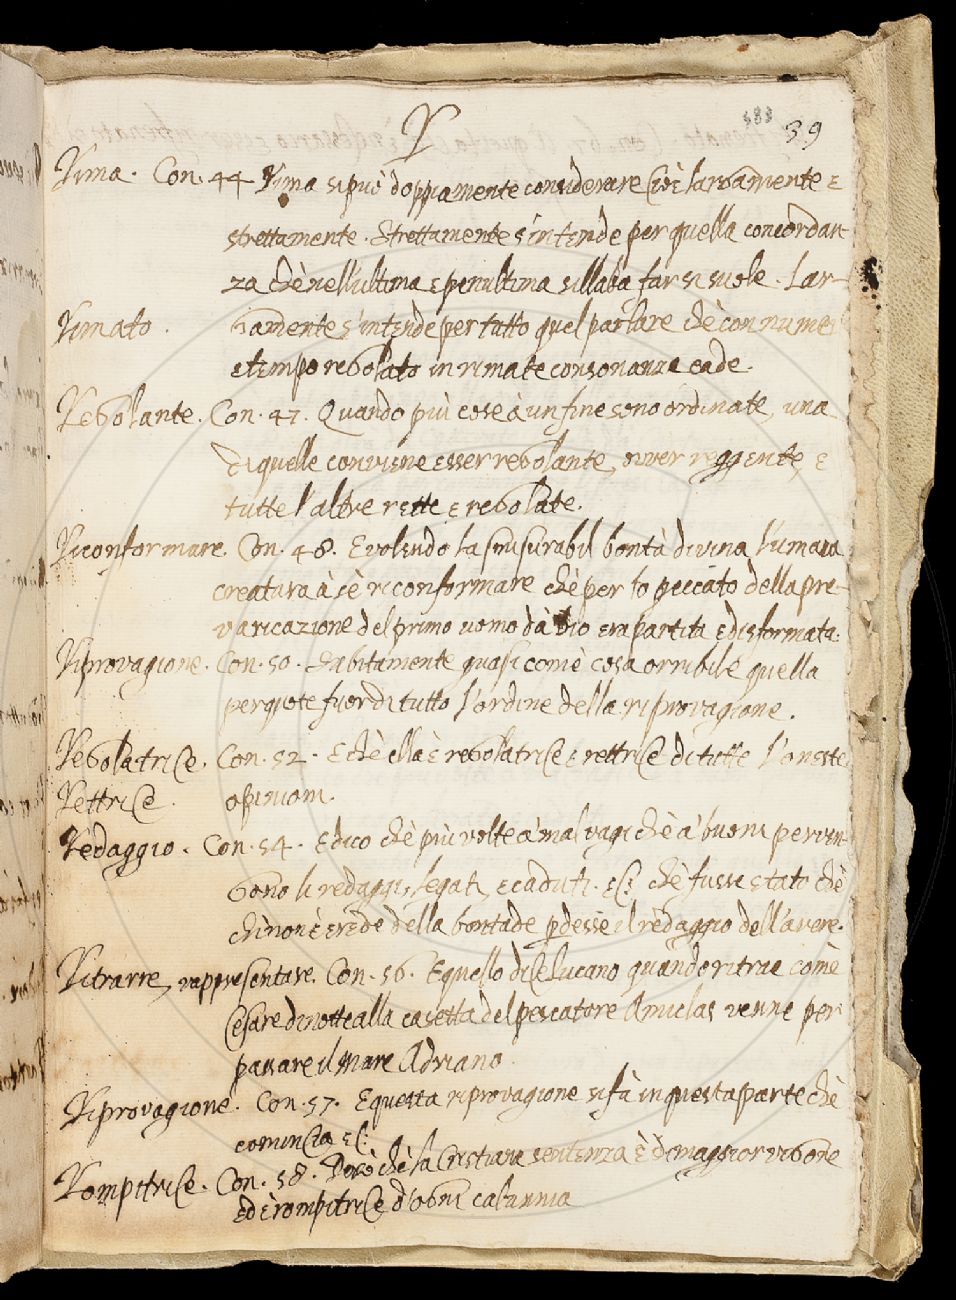 R
583
39
Rima. Con. 44 Rima si può doppiamente considerare cioè largamente e
strettamente. Strettamente s'intende per quella concordan-
za chè nell'ultima e penultima sillaba far si suole. Lar-
Rimato. gamente s'intende per tutto quel parlare chè con numeri
e tempo regolato in rimate consonanze cade.
Regolante. Con. 47. Quando più cose à un fine sono ordinate, una
di quelle conviene esser regolante, over reggente, e
tutte l'altre rette e regolate.
Riconformare. Con. 48. E volendo la smisurabil bontà divina l'umana
creatura à sè riconformare chè per lo peccato della pre-
varicazione del primo uomo dà Dio era partita e disformata.
Riprovagione. Con. 50. subitamente quasi comè cosa orribile quella
perquote fuor di tutto l'ordine della riprovagione.
Regolatrice. Con. 52. E chè ella è regolatrice e rettrice di tutte l'oneste
Rettrice. opinioni.
Redaggio. Con. 54. E dico chè più volte a' malvagi chè a' buoni perven-
gono li redaggi, legati, e caduti. ec: chè fusse stato chè
chi non è erede della bontade pdesse il redaggio dell'avere.
Ritrarre, rappresentare. Con. 56. E quello dice Lucano quando ritrae comè
Cesare di notte alla casetta del pescatore Amiclas venne per
passare il Mare Adriano.
Riprovagione. Con. 57. E questa riprovagione si fà in questa parte chè
comincia ec:
Rompitrice. Con. 58. Però chè la Cristiana sentenza è di maggior vigore
ed è rompitrice d'ogni calunnia